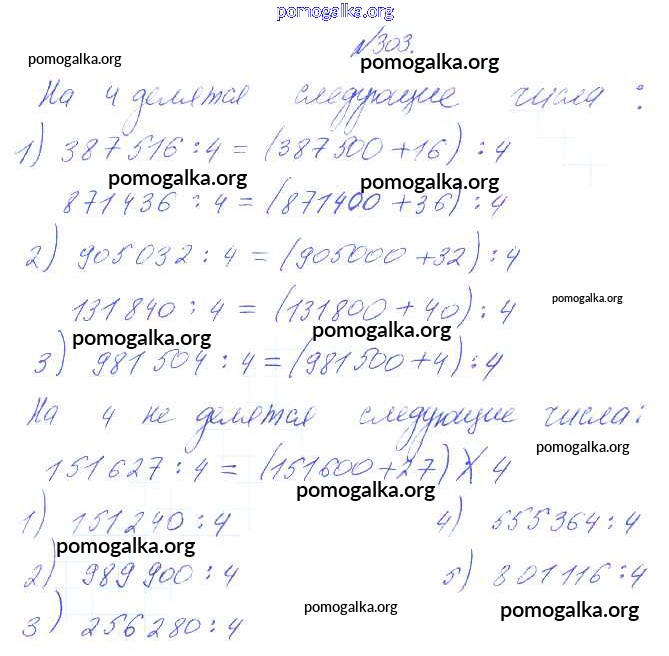 pomogalka.org
№303.
pomogalka.org pomogalka.org
На 4 делятся следующие числа:
1) 387516 : 4 = (387500 + 16) : 4
pomogalka.org pomogalka.org
871436 : 4 = (871400 + 36) : 4
2) 905032 : 4 = (905000 + 32) : 4
131840 : 4 = (131800 + 40) : 4
pomogalka.org
pomogalka.org pomogalka.org
3) 981504 : 4 = (981500 + 4) : 4
На 4 не делятся следующие числа:
pomogalka.org
151627 : 4 = (151600 + 27) : 4
pomogalka.org
1) 151240 : 4 4) 555364 : 4
pomogalka.org
2) 989900 : 4 5) 801116 : 4
3) 256280 : 4
pomogalka.org pomogalka.org